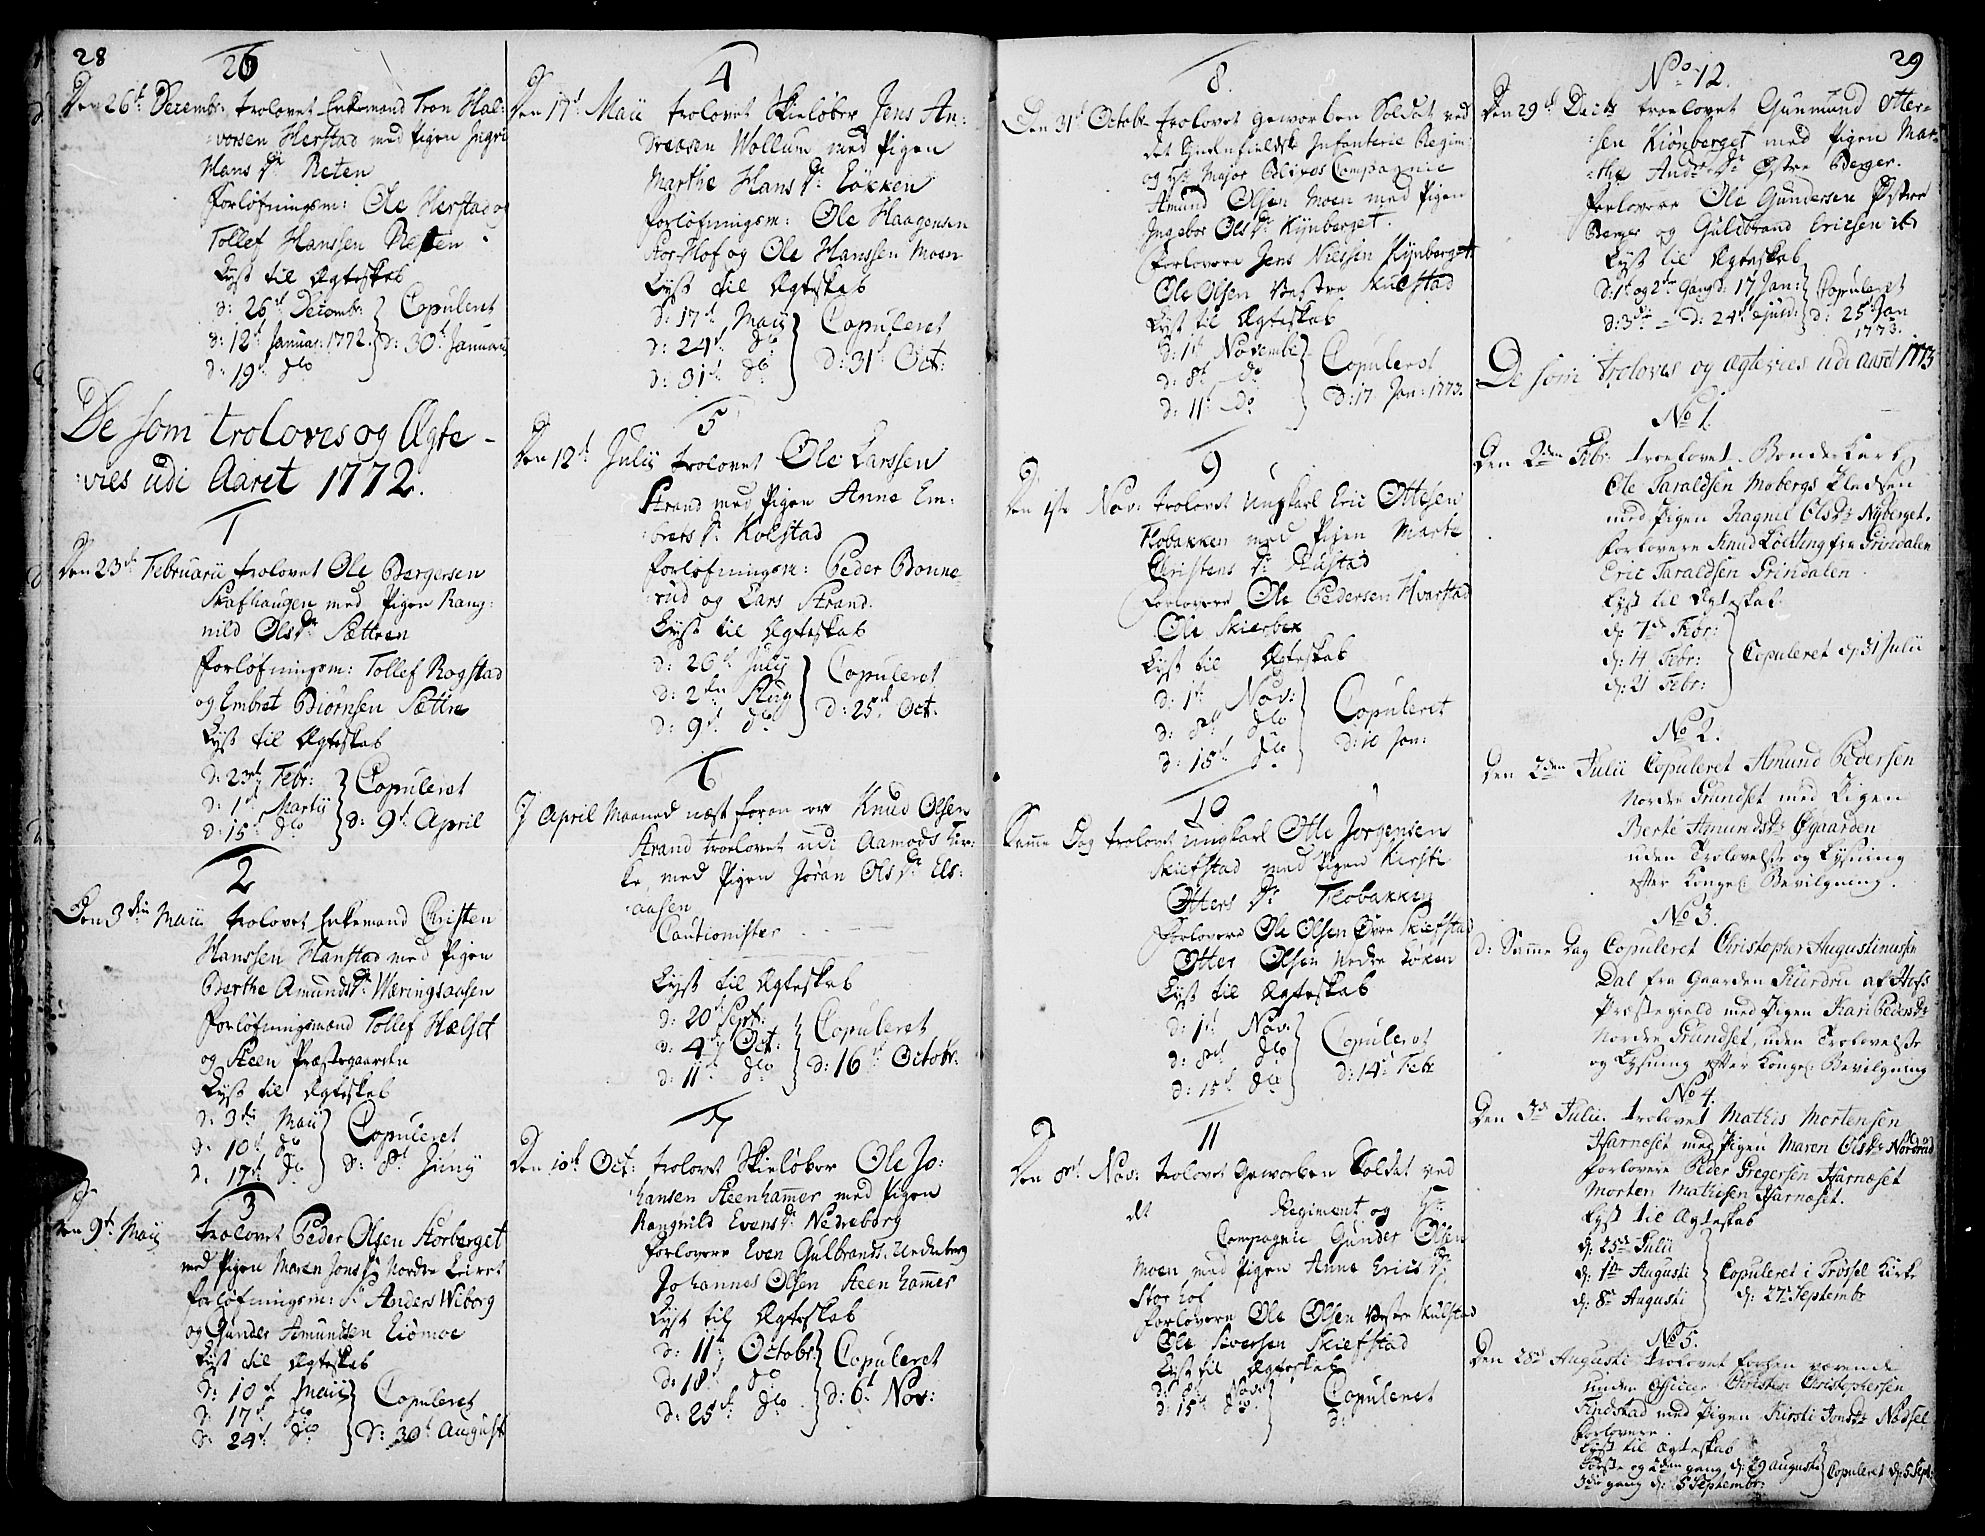 28
26
Den 26t Decembr. trolovet Enkemand Tron Hal-
vorsen Herstad med Pigen Ingri
Hans Dr Reten
Forløfningsm: Ole Herstad og
Tollef Hanssen Resten
Lyst til Ægteskab
d: 26t Decembr. } Copuleret
d: 12t Januar: 1772. } d: 30t Januarii
d: 19t dto
De som troloves og Ægte-
vies udi Aaret 1772.
1
Den 23de Februarii trolovet Ole Bergersen
Skafhaugen med Pigen Rang:
nild Ols Dr Sættren
Forløfningsm: Tollef Rogstad
og Embret Biørnsen Sættre
Lyst til Ægteskab
d: 23de Febr: } Copuleret
d: 1t Martij
d: 15t dto } d: 9t April
2
Den 3die Maii trolovet Enkemand Christen
Hanssen Hanstad med Pigen
Berthe Amunds Dr Væringsaasen
Forløfningsmænd Tollef Hælset
og Steen Præstegaarden
Lyst til Ægteskab
d: 3die Maii
d: 10t do } Copuleret
d. 17t do d: 8t Junij
3
Den 9t Maij trolovet Peder Olsen Storberget
med Pigen Maren Jons Dr Nordre Leiret
Forløfningsm: Sr Anders Wiborg
og Gunder Amundsen Eiømoe
Lyst til Ægteskab
d: 10t Maij } Copuleret
d: 17t do
d: 24t dto } d: 30t August
4
Den 17t Maii trolovet Skieløber Jens An-
dreasen Wollum med Pigen
Marthe Hans Dr Løkken
Forløfningsm: Ole Haagensen
Stor-Hof og Ole Hanssen Moen
Lyst til Ægteskab
d: 17t Maij } Copuleret
d: 24t dto
d: 31t do } d: 31t Oct:
5
Den 12t Julij trolovet Ole Larssen
Strand med Pigen Anne Em-
brets Dr Kolstad
Forløfningsm: Peder Bonne
rud og Lars Strand.
Lyst til Ægteskab
d: 26t July } Copuleret
d: 2den Aug
d: 9t do } d: 25t Oct.
6
J April Maaned næst foran er Knud Olsen
Strand troelovet udi Aamods Kir-
ke, med Pigen Jøran Ols Dr Els-
aasen
Cautionister
Lyst til Ægteskab
d: 20t Sept: } Copuleret
d: 4t Oct:
d: 11t dto } d: 16t Octobr.
7
Den 10t Oct: trolovet Skieløber Ole Jo-
hansen Steenhammer med Pigen
Rangnild Evens Dr Nedreberg
Forlovere Even Gulbrands. Nedreberg
Johannes Olsen Steenhammer
Lyst til Ægteskab
d: 11t Octobr } Copuleret
d: 18t do
d: 25t dto } d: 6t Nov:
8.
Den 31t Octobr trolovet geworben Soldat ved
det Syndenfieldske Infanterie Regim:
og Hr. Major Blixes Compagnie
Amund Olsen Moen med Pigen
Ingebor Ols Dr Kynberget.
Forlovere Jens Nielsen Kynberget
Ole Olsen Vestre Kulstad
Lyst til Ægteskab
d: 1t Novembe } Copuleret
d: 8t do
d: 11t do } d: 17 Jan: 1773.
9
Den 1ste Nov: trolovet Ungkarl Eric Ottesen
Flobakken med Pigen Marte
Christens Dr Rustad
Forlovere Ole Pedersen Hvarstad
Ole Skierbek
Lyst til Ægteskab
d: 1t Nov: } Copuleret
d: 8t dto
d: 15t do } d: 10 Jan:
10
Samme Dag trolovet Ungkarl Otte Jørgensen
Skiefstad med Pigen Kersti
Otters Dr Flobakken
Forlovere Ole Olsen Øvre Skiefstad
Otter Olsen Nedre Løken
Lyst til Ægteskab
d: 1t Nov. } Copuleret
d: 8de dto
d: 15t dto } d: 14t Febr
11
Den 8t Nov: trolovet Geworben Soldat ved
det Regiment og Hr.
Compagnie Gunder Olsen
Moen med Pigen Anne Erics Dr
Storhof
Forlovere Ole Olsen Vestre Kulstad
Ole Siversen Skiefstad
Lyst til Ægteskab
d: 8t Nov: } Copuleret
d: 15t dto } d:
29
No 12.
Den 29t Decbr troelovet Gunmund Otter-
sen Kiønberget med Pigen Mar-
the And: Dr Østre Berger.
Forlovere Ole Gundersen Østre
Berger og Guldbrand Ericsen ibd
Lyst til Ægteskab
d: 1t og 2den Gang d: 17 Jan: } Copuleret
d: 3die — d: 24t ejusd: } d: 25t Jan
1773.
De som troloves og ægtevies udi Aaret 1773
No 1.
Den 2den Febr: troelovet Bonde Karl
Ole Taraldsen Mobergs Eledsen
med Pigen Ragnil Olsdr Nyberget.
Forlovere Knud Løkking fra Grindalen
Eric Taraldsen Grindalen
Lyst til Ægteskab.
d: 7de Febr:
d: 14 Febr: } Copuleret d: 31 Julii
d: 21 Febr:
No 2.
Den 2den Julii Copuleret Amund Pedersen
Nordre Grundset med Pigen
Berte Amundsdr Øgaarden
uden Trolovelse og Lysning
efter Kongel: Bevilgning.
No 3.
d: Samme Dag Copuleret Christopher Augustinussen
Dal fra Gaarden Kurdru af Hofs
Præstegield med Pigen Kari Pedersdr
Nordre Grundset, uden Trolovelse
og Lysning efter Kongel: Bevilgning
No 4.
Den 3de Julii. trolovet Mathis Mortensen
Harnæset med Pigen Maren Olsdr Norderud
Forlovere Peder Gregersen Harnæset
Morten Mathisen Harnæset.
Lyst til Ægteskab
d: 25de Julii
d: 1ste Augusti } Copuleret i Trøssel Kirke
d: 8de Augusti } d: 27de Septembr
No 5.
Den 28de Augusti trolovet forhen værende
Under Officer Christen Christophersen
Kindstad med Pigen Kirsti Jonsdr Nødsel
Forlovere.
Lyst til Ægteskab
Første og 2den gang d: 29 Augusti } Copuleret d: 5 Sept:
3die gang d: 5 Septembr: